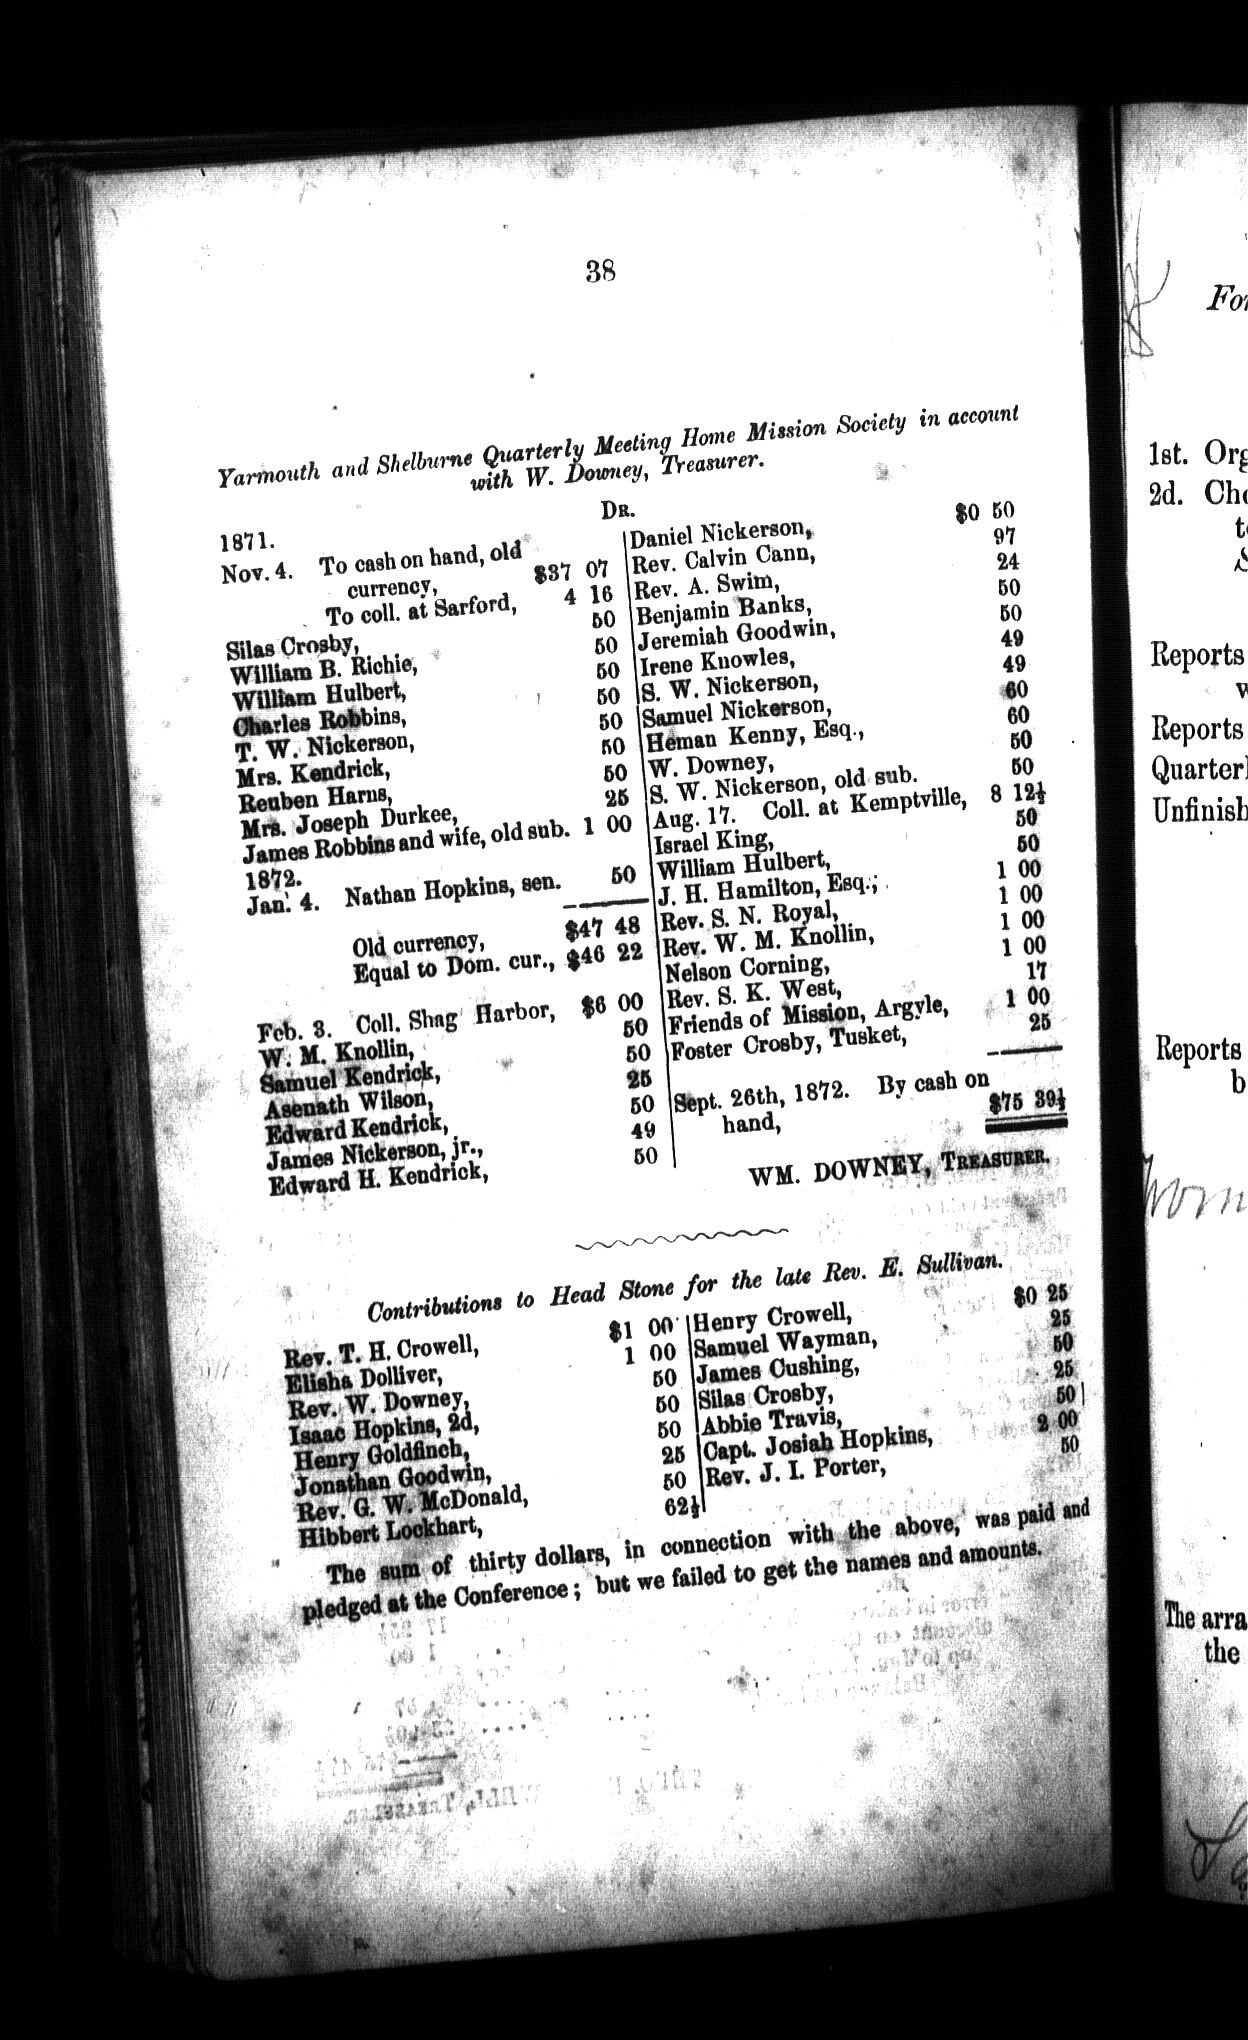 38
Yarmouth and Shelburne Quarterly Meeting Home Mission Society in account
with W. Downey, Treasurer.
DR.
1871.
Nov. 4. To cash on hand, old
currency, $37 07
To coll. at Sarford, 4 16
Silas Crosby, 50
William B. Richie, 50
William Hulbert, 50
Charles Robbins, 50
T. W. Nickerson, 50
Mrs. Kendrick, 50
Reuben Harns, 50
Mrs. Joseph Durkee, 25
James Robbins and wife, old sub. 1 00
1872.
Jan. 4. Nathan Hopkins, sen. 50
Old currency, $47 48
Equal to Dom. cur., $46 22
Feb. 3. Coll. Shag Harbor, $6 00
W. M. Knollin, 50
Samuel Kendrick, 50
Asenath Wilson, 25
Edward Kendrick, 50
James Nickerson, jr., 49
Edward H. Kendrick, 50
Daniel Nickerson, $0 50
Rev. Calvin Cann, 97
Rev. A. Swim, 24
Benjamin Banks, 50
Jeremiah Goodwin, 50
Irene Knowles, 49
S. W. Nickerson, 49
Samuel Nickerson, 60
Heman Kenny, Esq., 60
W. Downey, 50
S. W. Nickerson, old sub. 50
Aug. 17. Coll. at Kemptville, 8 12½
Israel King, 50
William Hulbert, 50
J. H. Hamilton, Esq., 1 00
Rev. S. N. Royal, 1 00
Rev. W. M. Knollin, 1 00
Nelson Corning, 1 00
Rev. S. K. West, 17
Friends of Mission, Argyle, 1 00
Foster Crosby, Tusket, 25
Sept. 26th, 1872. By cash on
hand, $75 39½
WM. DOWNEY, TREASURER.
Contributions to Head Stone for the late Rev. E. Sullivan.
Rev. T. H. Crowell, $1 00
Elisha Dolliver, 1 00
Rev. W. Downey, 50
Isaac Hopkins, 2d, 50
Henry Goldfinch, 50
Jonathan Goodwin, 25
Rev. G. W. McDonald, 50
Hibbert Lockhart, 62½
Henry Crowell, $0 25
Samuel Wayman, 25
James Cushing, 50
Silas Crosby, 25
Abbie Travis, 50
Capt. Josiah Hopkins, 2 00
Rev. J. I. Porter, 50
The sum of thirty dollars, in connection with the above, was paid and
pledged at the Conference; but we failed to get the names and amounts.
1st.
2d.
Reports
Reports
Reports
The arra
the